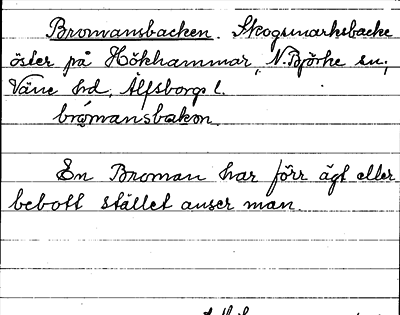 Bromansbacken. Skogsmarksbacke
öster på Hökhammar, N. Björke sn,
Väne hd, Älfsborgs l.
brωmansbakən.
En Broman har förr ägt eller
bebott stället anser man.